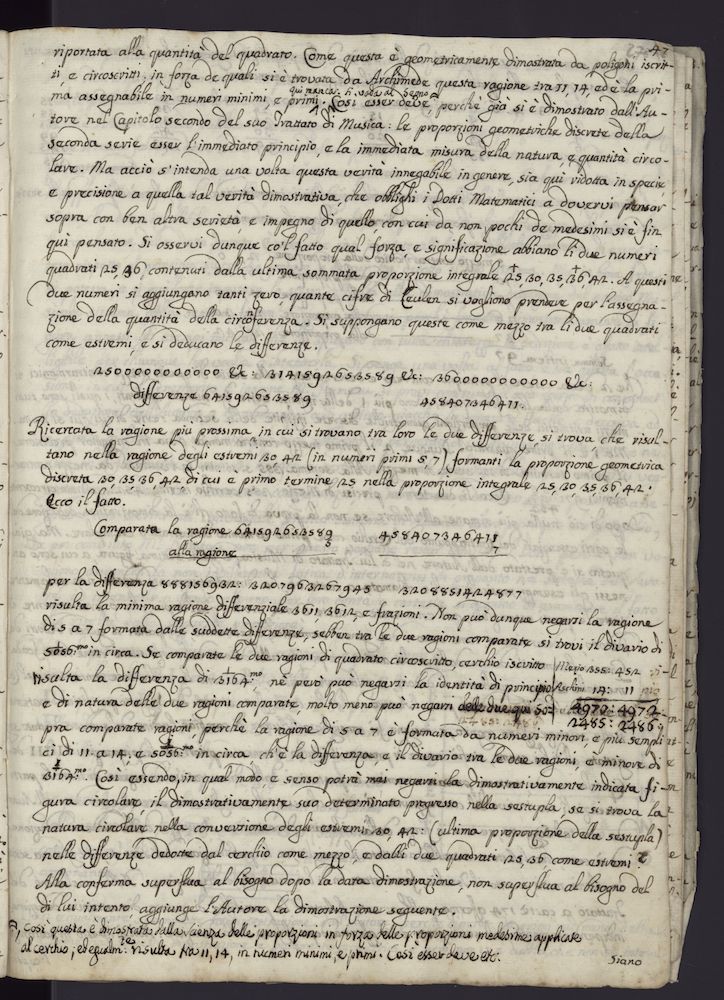 47
riportata alla quantità del quadrato. Come questa è geometricamente dimostrata da poligoni iscrit-
ti, e circoscritti, in forza de quali si è trovata da Archimede questa ragione tra 11, 14, ed è la pri-
ma assegnabile in numeri minimi, e primi. Così esser deve, perchè già si è dimostrato dall'Au-
qui manca: si vada al segno
tore nel Capitolo secondo del suo Trattato di Musica: le proporzioni geometriche discrete della
seconda serie esser l'immediato principio, e la immediata misura della natura, e quantità circo-
lare. Ma acciò s'intenda una volta questa verità innegabile in genere, sia qui ridotta in specie
e precisione a quella tal verità dimostrativa, che obblighi i Dotti Matematici a dovervi pensar
sopra con ben altra serietà, e impegno di quello, con cui da non pochi de medesimi si è fin
qui pensato. Si osservi dunque co'l fatto qual forza, e significazione abbiano li due numeri
quadrati 25, 36, contenuti dalla ultima sommata proporzione integrale 25, 30, 35, 36, 42. A questi
due numeri si aggiungano tanti zero, quante cifre di Ceulen si vogliono prendere per l'assegna-
zione della quantità della circonferenza. Si suppongano queste come mezzo tra li due quadrati
come estremi, e si deducano le differenze.
2500000000000 &c: 3141592653589 &c: 3600000000000 &c:
differenze 641592653589 458407346411.
Ricercata la ragione più prossima, in cui si trovano tra loro le due differenze, si trova, che risul-
tano nella ragione degli estremi 30, 42 (in numeri primi 5, 7) formanti la proporzione geometrica
discreta 30, 35, 36, 42, di cui è primo termine 25 nella proporzione integrale 25, 30, 35, 36, 42.
Ecco il fatto.
Comparata la ragione 641592653589 458407346411
alla ragione 5 7
per la differenza 888156932: 3207963267945 3208851424877
risulta la minima ragione differenziale 3611, 3612, e frazioni. Non può dunque negarsi la ragione
di 5 a 7 formata dalle suddette differenze, sebben tra le due ragioni comparate si trovi il divario di
5056:mo in circa. Se comparate le due ragioni di quadrato circoscritto, cerchio iscritto Mezio 355: 452
risulta la differenza di 3164:mo nè però può negarsi la identità di principio, Archim. 14: 11
e di natura delle due ragioni comparate, molto meno può negarsi delle due qui so- 4970: 4972
pra comparate ragioni, perchè la ragione di 5 a 7 è formata da numeri minori, e più sempli- 2485: 2486
ci di 11 a 14, e 5056:mo in circa, ch'è la differenza, e il divario tra le due ragioni, è minore di
3164:mo. Così essendo, in qual modo, e senso potrà mai negarsi la dimostrativamente indicata fi-
gura circolare, il dimostrativamente suo determinato progresso nella sestupla, se si trova la
natura circolare nella conversione degli estremi 30, 42: (ultima proporzione della sestupla)
nelle differenze dedotte dal cerchio come mezzo, e dalli due quadrati 25, 36 come estremi?
Alla conferma superflua al bisogno dopo la data dimostrazione, non superflua al bisogno del
di lui intento, aggiunge l'Autore la dimostrazione seguente.
Così questa è dimostrata dalla scienza delle proporzioni in forza delle proporzioni medesime applicate
al cerchio; ed egualm:te risulta tra 11, 14, in numeri minimi, e primi. Così esser deve etc.
Siano